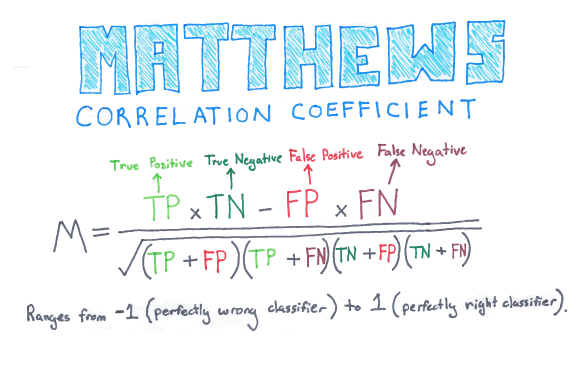 MATTHEWS
CORRELATION COEFFICIENT
True Positive True Negative False Positive False Negative
TP × TN - FP × FN
M =
√(TP + FP)(TP + FN)(TN + FP)(TN + FN)
Ranges from -1 (perfectly wrong classifier) to 1 (perfectly right classifier).